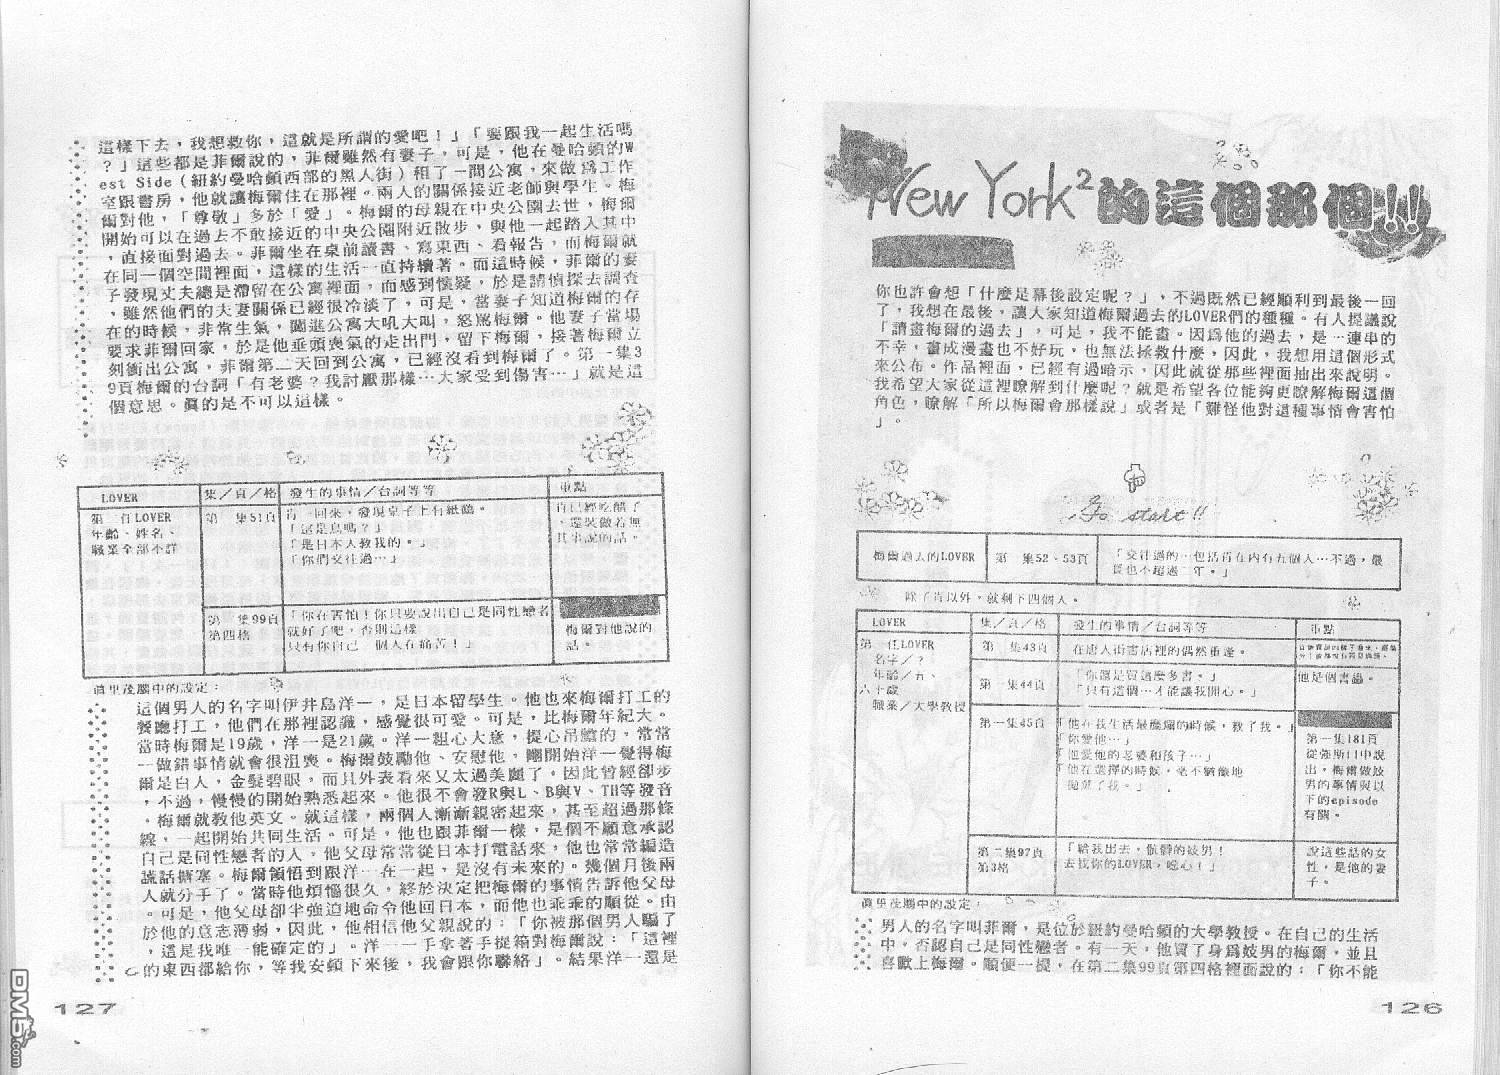 New York²的這個那個!!
你也許會想「什麼是幕後設定呢？」，不過既然已經順利到最後一回
了，我想在最後，讓人家知道梅爾過去的LOVER們的種種。有人提議說
「請畫梅爾的過去」，可是，我不能畫。因為他的過去，是一連串的
不幸，畫成漫畫也不好玩，也無法拯救什麼，因此，我想用這個形式
來公布。作品裡面，已經有過暗示，因此就從那些裡面抽出來說明。
我希望大家從這裡瞭解到什麼呢？就是希望各位能夠更瞭解梅爾這個
角色，瞭解「所以梅爾會那樣說」或者是「難怪他對這種事情會害怕
」。
Go start!!
梅爾過去的LOVER
第一集52、53頁
「交往過的…包括肯在內有五個人…不過，最
長也不超過二年。」
除了肯以外，就剩下四個人。
LOVER
集／頁／格
發生的事情／台詞等等
重點
第一任LOVER
名字／？
年齡／五、
六十歲
職業／大學教授
第一集43頁
在唐人街書店裡的偶然重逢。
第一集44頁
「你還是買這麼多書。」
「只有這個…才能讓我開心。」
他是個書蟲。
第一集45頁
「他在我生活最靡爛的時候，救了我。」
「你愛他…」
「他愛他的老婆和孩子…」
「他在選擇的時候，毫不猶豫地
拋棄了我。」
第一集181頁
從強斯口中說
出，梅爾做妓
男的事情與以
下的episode
有關。
第二集97頁
第3格
「給我出去，骯髒的妓男！
去找你的LOVER，噁心！」
說這些話的女
性，是他的妻
子。
真里茂腦中的設定：
男人的名字叫菲爾，是位於紐約曼哈頓的大學教授。在自己的生活
中，否認自己是同性戀者。有一天，他買了身為妓男的梅爾，並且
喜歡上梅爾。順便一提，在第二集99頁第四格裡面說的：「你不能
126
這樣下去，我想救你，這就是所謂的愛吧！」「要跟我一起生活嗎
？」這些都是菲爾說的，菲爾雖然有妻子，可是，他在曼哈頓的W
est Side（紐約曼哈頓西部的黑人街）租了一間公寓，來做為工作
室跟書房，他就讓梅爾住在那裡。兩人的關係接近老師與學生。梅
爾對他，「尊敬」多於「愛」。梅爾的母親在中央公園去世，梅爾
開始可以在過去不敢接近的中央公園附近散步，與他一起踏入其中
，直接面對過去。菲爾坐在桌前讀書、寫東西、看報告，而梅爾就
在同一個空間裡面，這樣的生活一直持續著。而這時候，菲爾的妻
子發現丈夫總是滯留在公寓裡面，而感到懷疑，於是請偵探去調查
，雖然他們的夫妻關係已經很冷淡了，可是，當妻子知道梅爾的存
在的時候，非常生氣，闖進公寓大吼大叫，怒罵梅爾。他妻子當場
要求菲爾回家，於是他垂頭喪氣的走出門，留下梅爾，接著梅爾立
刻衝出公寓，菲爾第二天回到公寓，已經沒看到梅爾了。第一集3
9頁梅爾的台詞「有老婆？我討厭那樣…大家受到傷害…」就是這
個意思。真的是不可以這樣。
LOVER
集／頁／格
發生的事情／台詞等等
重點
第二任LOVER
年齡、姓名、
職業全部不詳
第一集51頁
肯一回來，發現桌子上有紙鶴。
「這是鳥嗎？」
「是日本人教我的。」
「你們交往過…」
肯已經吃醋了
，還裝做若無
其事說的話。
第二集99頁
第四格
「你在害怕！你只要說出自己是同性戀者
就好了吧，否則這樣
只有你自己一個人在痛苦！」
梅爾對他說的
話。
真里茂腦中的設定：
這個男人的名字叫伊井島洋一，是日本留學生。他也來梅爾打工的
餐廳打工，他們在那裡認識，感覺很可愛。可是，比梅爾年紀大。
當時梅爾是19歲，洋一是21歲。洋一粗心大意，提心吊膽的，常常
一做錯事情就會很沮喪。梅爾鼓勵他、安慰他，剛開始洋一覺得梅
爾是白人，金髮碧眼，而且外表看來又太過美麗了，因此曾經卻步
，不過，慢慢的開始熟悉起來。他很不會發R與L、B與V、TH等發音
，梅爾就教他英文。就這樣，兩個人漸漸親密起來，甚至超過那條
線，一起開始共同生活。可是，他也跟菲爾一樣，是個不願意承認
自己是同性戀者的人，他父母常常從日本打電話來，他也常常編造
謊話搪塞。梅爾領悟到跟洋一在一起，是沒有未來的。幾個月後兩
人就分手了。當時他煩惱很久，終於決定把梅爾的事情告訴他父母
。可是，他父母卻半強迫地命令他回日本，而他也乖乖的順從。由
於他的意志薄弱，因此，他相信他父親說的：「你被那個男人騙了
，這是我唯一能確定的」。洋一一手拿著手提箱對梅爾說：「這裡
的東西都給你，等我安頓下來後，我會跟你聯絡」。結果洋一還是
127
DM5.com